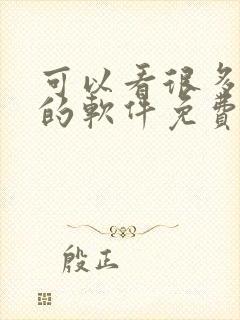 可以看很多
的軟件免費
殷正